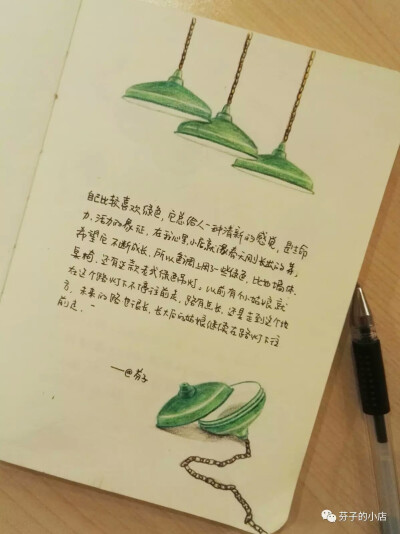 自己比较喜欢绿色,它总给人一种清新的感觉,是生命
力、活力的象征。在我心里,小店就像春天刚长出的芽,
希望它不断成长,所以色调上用了一些绿色,比如墙体、
桌椅,还有这款老式绿色吊灯。以前有个小姑娘就
在这个路灯下不停往前走,路有点长,还是走到这个地
方,未来的路也很长,长大后的姑娘继续在路灯下往
前走。
——@芬子
芬子的小店